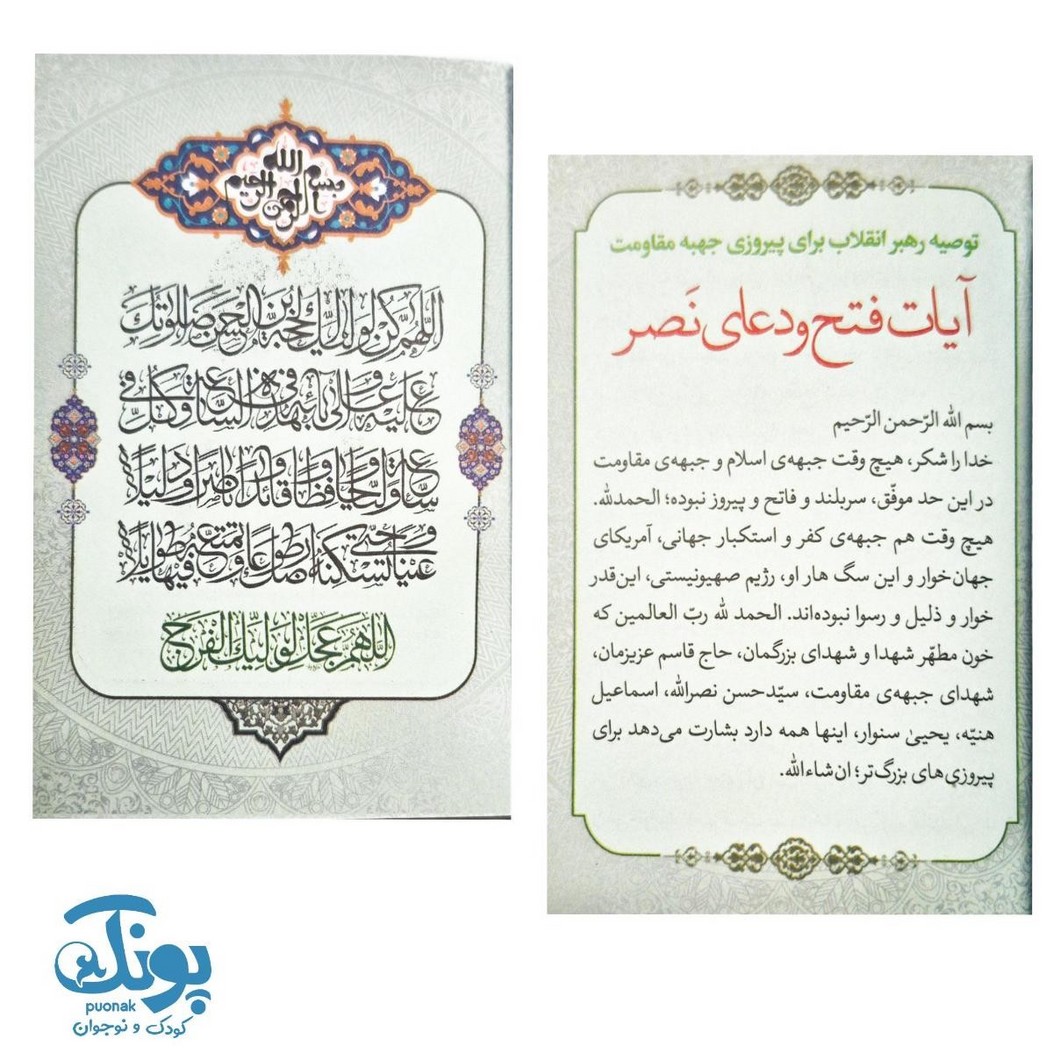 بسم الله الرحمن الرحیم
اللّهُمَّ كُنْ لِوَلِيِّكَ الْحُجَّةِ بْنِ الْحَسَنِ صَلَواتُكَ
عَلَيْهِ وَعَلى آبائِهِ في هذِهِ السّاعَةِ وَفي كُلِّ
ساعَةٍ وَلِيّاً وَحافِظاً وَقائِداً وَناصِراً وَدَليلاً وَ
عَيْناً حَتّى تُسْكِنَهُ أَرْضَكَ طَوْعاً وَتُمَتِّعَهُ فيها طَويلاً
اللّهُمَّ عَجِّلْ لِوَلِيِّكَ الْفَرَج
توصیه رهبر انقلاب برای پیروزی جبهه مقاومت
آیات فتح و دعای نَصر
بسم الله الرّحمن الرّحیم
خدا را شکر، هیچ وقت جبهه‌ی اسلام و جبهه‌ی مقاومت
در این حد موفّق، سربلند و فاتح و پیروز نبوده؛ الحمدلله.
هیچ وقت هم جبهه‌ی کفر و استکبار جهانی، آمریکای
جهان‌خوار و این سگ هار او، رژیم صهیونیستی، این‌قدر
خوار و ذلیل و رسوا نبوده‌اند. الحمد لله ربّ العالمین که
خون مطهّر شهدا و شهدای بزرگمان، حاج قاسم عزیزمان،
شهدای جبهه‌ی مقاومت، سیّدحسن نصرالله، اسماعیل
هنیّه، یحییٰ سنوار، اینها همه دارد بشارت می‌دهد برای
پیروزی‌های بزرگ‌تر؛ ان‌شاءالله.
پونک
puonak
کودک و نوجوان